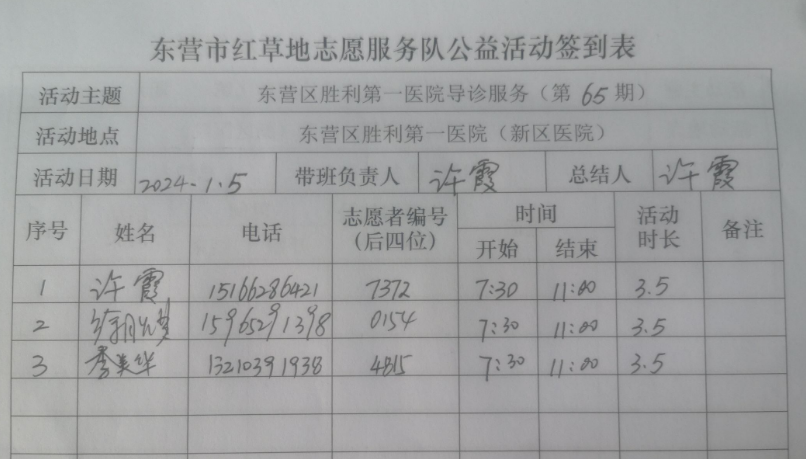 东营市红草地志愿服务队公益活动签到表
活动主题 东营区胜利第一医院导诊服务（第65期）
活动地点 东营区胜利第一医院（新区医院）
活动日期 2024.1.5 带班负责人 许霞 总结人 许霞
序号 姓名 电话 志愿者编号（后四位） 时间 开始 结束 活动时长 备注
1 许霞 15166286421 7372 7:30 11:00 3.5
2 15965291398 0154 7:30 11:00 3.5
3 李美华 13210391938 4815 7:30 11:00 3.5